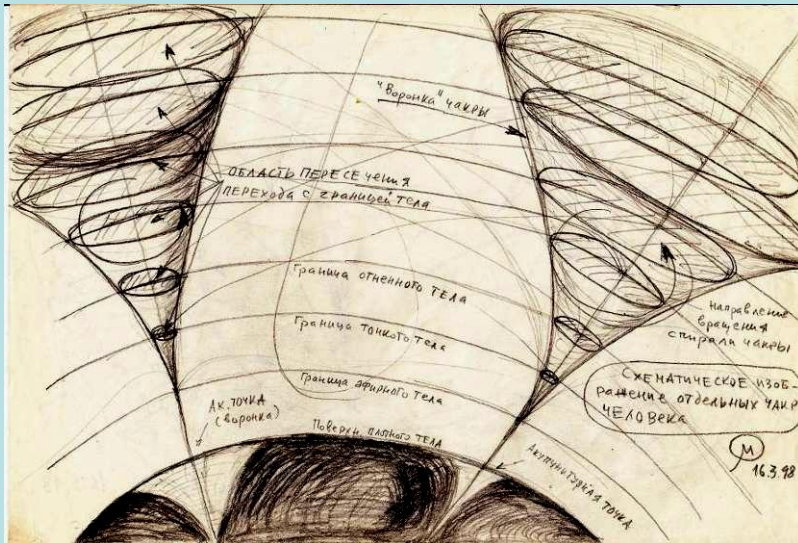 "Воронка" чакры
ОБЛАСТЬ ПЕРЕСЕЧЕНИЯ
ПЕРЕХОДА С ГРАНИЦЕЙ ТЕЛА
Граница огненного тела
Граница тонкого тела
Граница эфирного тела
Поверхн. плотного тела
Ак. точка
(воронка)
Акупунктурная точка
Направление
вращения
спирали чакры
СХЕМАТИЧЕСКОЕ ИЗОБ-
РАЖЕНИЕ ОТДЕЛЬНЫХ ЧАКР
ЧЕЛОВЕКА
М
16.3.98